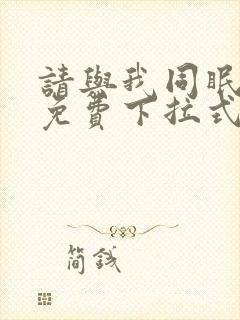 請與我同眠
免費下拉式
簡錢